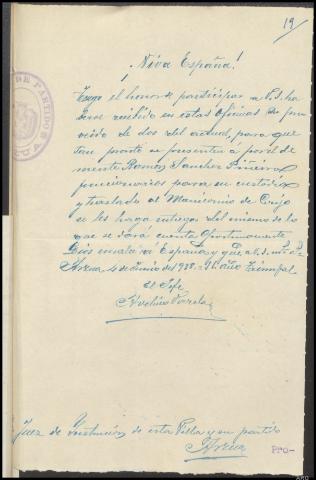 19
¡Viva España!
Tengo el honor de participar a V.S. ha
berse recibido en estas Oficinas
de dos del actual, para que
tan pronto se presenten a por el de
mente Ramon Sanchez Piñeiro
funcionarios para su custodia
y traslado al Manicomio de Conjo
se les haga entrega del mismo de lo
que se dará cuenta Oportunamente
Dios salve a España y gue. a V.S. ms. as.
Arzua 4 de Junio de 1938.- II año Triunfal
El Jefe
Varela
Juez de Instrucción de esta Villa y su partido
Arzua
Pro-
DE PARTIDO